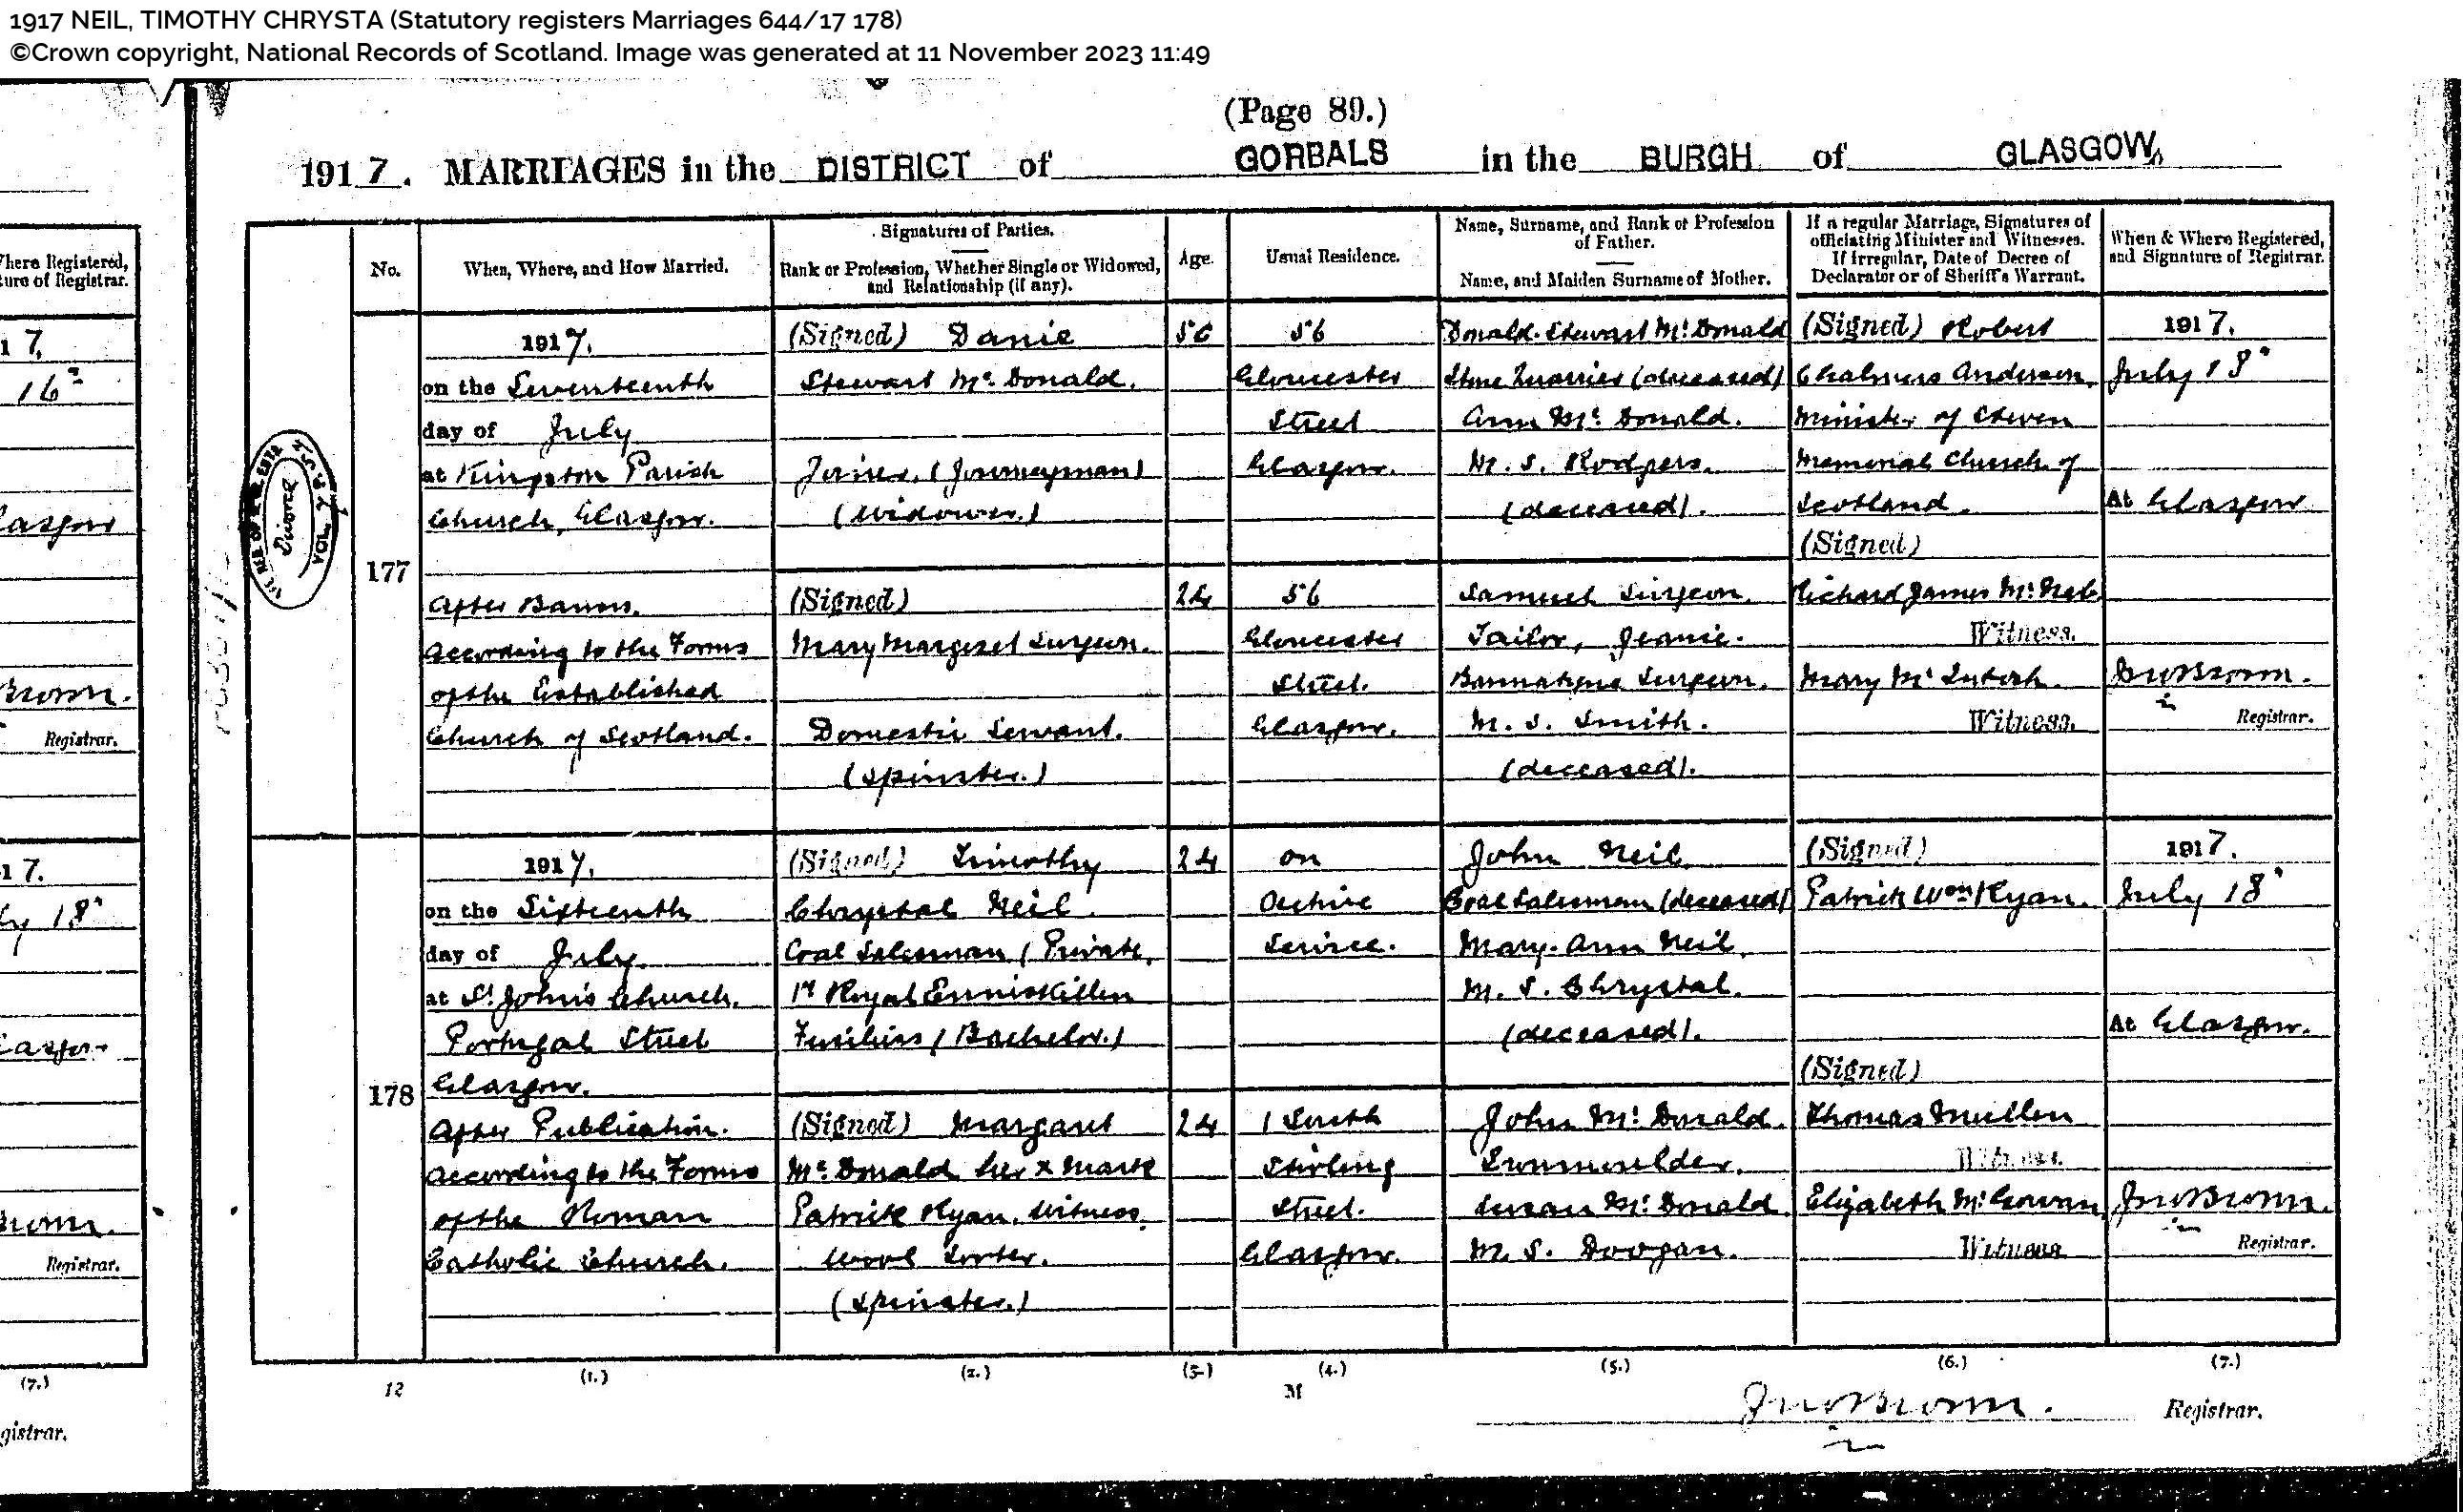 1917 NEIL, TIMOTHY CHRYSTA (Statutory registers Marriages 644/17 178)
©Crown copyright, National Records of Scotland. Image was generated at 11 November 2023 11:49
(Page 89.)
1917. MARRIAGES in the DISTRICT of GORBALS in the BURGH of GLASGOW
No.
When, Where, and How Married.
Signatures of Parties.
Rank or Profession, Whether Single or Widowed,
and Relationship (if any).
Age.
Usual Residence.
Name, Surname, and Rank or Profession
of Father.
Name, and Maiden Surname of Mother.
If a regular Marriage, Signatures of
officiating Minister and Witnesses.
If Irregular, Date of Decree of
Declarator or of Sheriff's Warrant.
When & Where Registered,
and Signature of Registrar.
Divorce
177
1917.
on the Seventeenth
day of July
at Kingston Parish
Church, Glasgow.
After Banns.
According to the Forms
of the Established
Church of Scotland.
(Signed) Danie
Stewart Mc. Donald.
Joiner, (Journeyman)
(Widower.)
(Signed)
Mary Margaret Surgeon.
Domestic Servant.
(Spinster.)
56
24
56
Gloucester
Street
Glasgow.
56
Gloucester
Street.
Glasgow.
Donald Stewart Mc. Donald
(deceased)
Ann Mc. Donald.
M. S. Rodgers.
(deceased).
Samuel Surgeon.
Tailor, Jeanie.
Bannatyne Surgeon.
M. S. Smith.
(deceased).
(Signed) Robert
Chalmers Anderson,
Minister of
Memorial Church of
Scotland.
(Signed)
Richard James
Witness.
Mary Mc Intosh.
Witness.
1917.
July 18"
At Glasgow
Jno Brown.
Registrar.
178
1917.
on the Sixteenth
day of July.
at St. John's Church.
Portugal Street
Glasgow.
After Publication.
According to the Forms
of the Roman
Catholic Church.
(Signed) Timothy
Chrystal Neil.
Coal Salesman / Private,
1st Royal Enniskillen
Fusiliers / Bachelor.)
(Signed) Margaret
Mc. Donald her x mark
Patrick Ryan. Witness.
Wool Sorter.
(Spinster.)
24
24
on
Active
Service.
1 South
Stirling
Street.
Glasgow.
John Neil
Coal Salesman (deceased)
Mary Ann Neil.
M. S. Chrystal.
(deceased).
John Mc. Donald.
Ironmoulder.
Susan Mc. Donald.
M. S. Doogan.
(Signed)
Patrick Wm Ryan.
(Signed)
Thomas Mullen
Witness.
Elizabeth Mc. Gowan
Witness
1917.
July 18"
At Glasgow.
Jno Brown.
Registrar.
(1.) (2.) (3.) (4.) (5.) (6.) (7.)
12 M
Jno Brown.
Registrar.